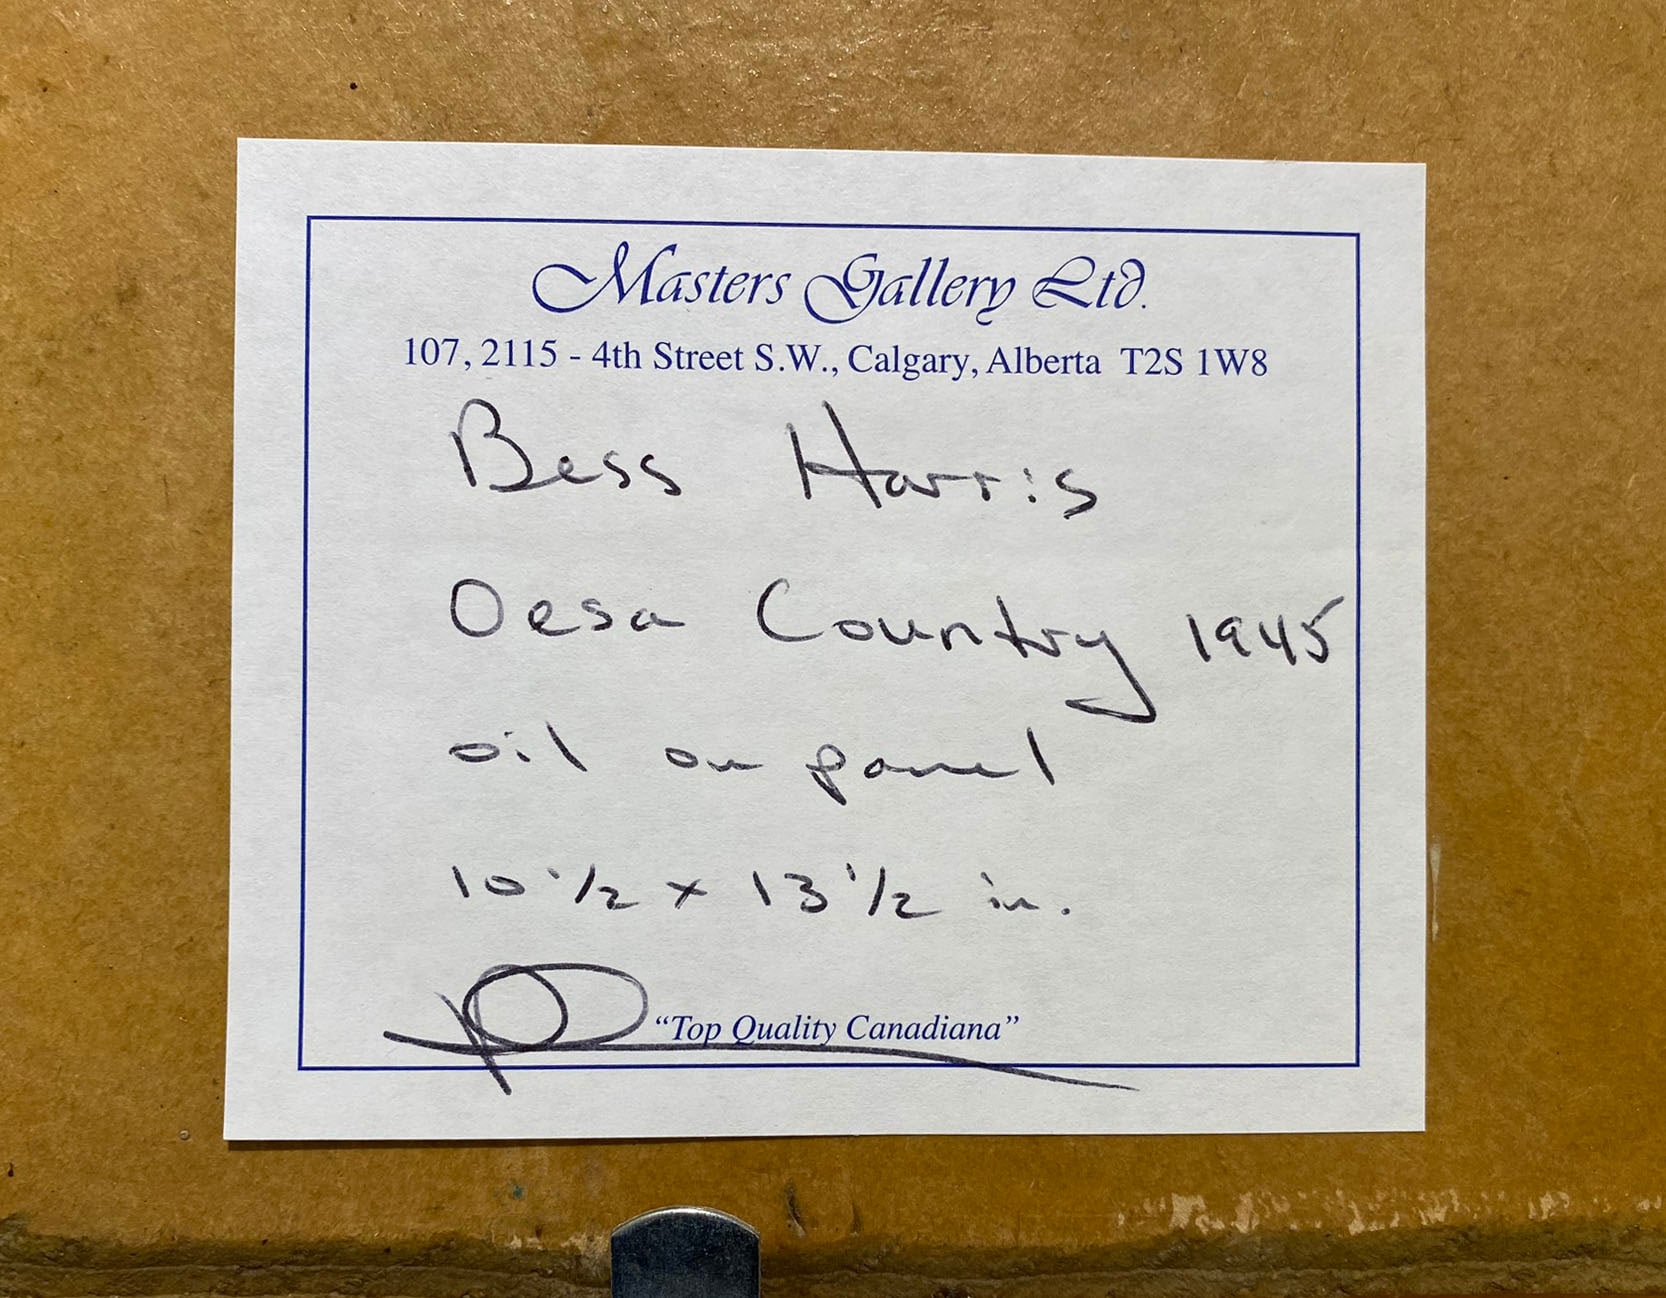 Masters Gallery Ltd.
107, 2115 - 4th Street S.W., Calgary, Alberta T2S 1W8
Bess Harris
Oesa Country 1945
oil on panel
10 1/2 x 13 1/2 in.
"Top Quality Canadiana"